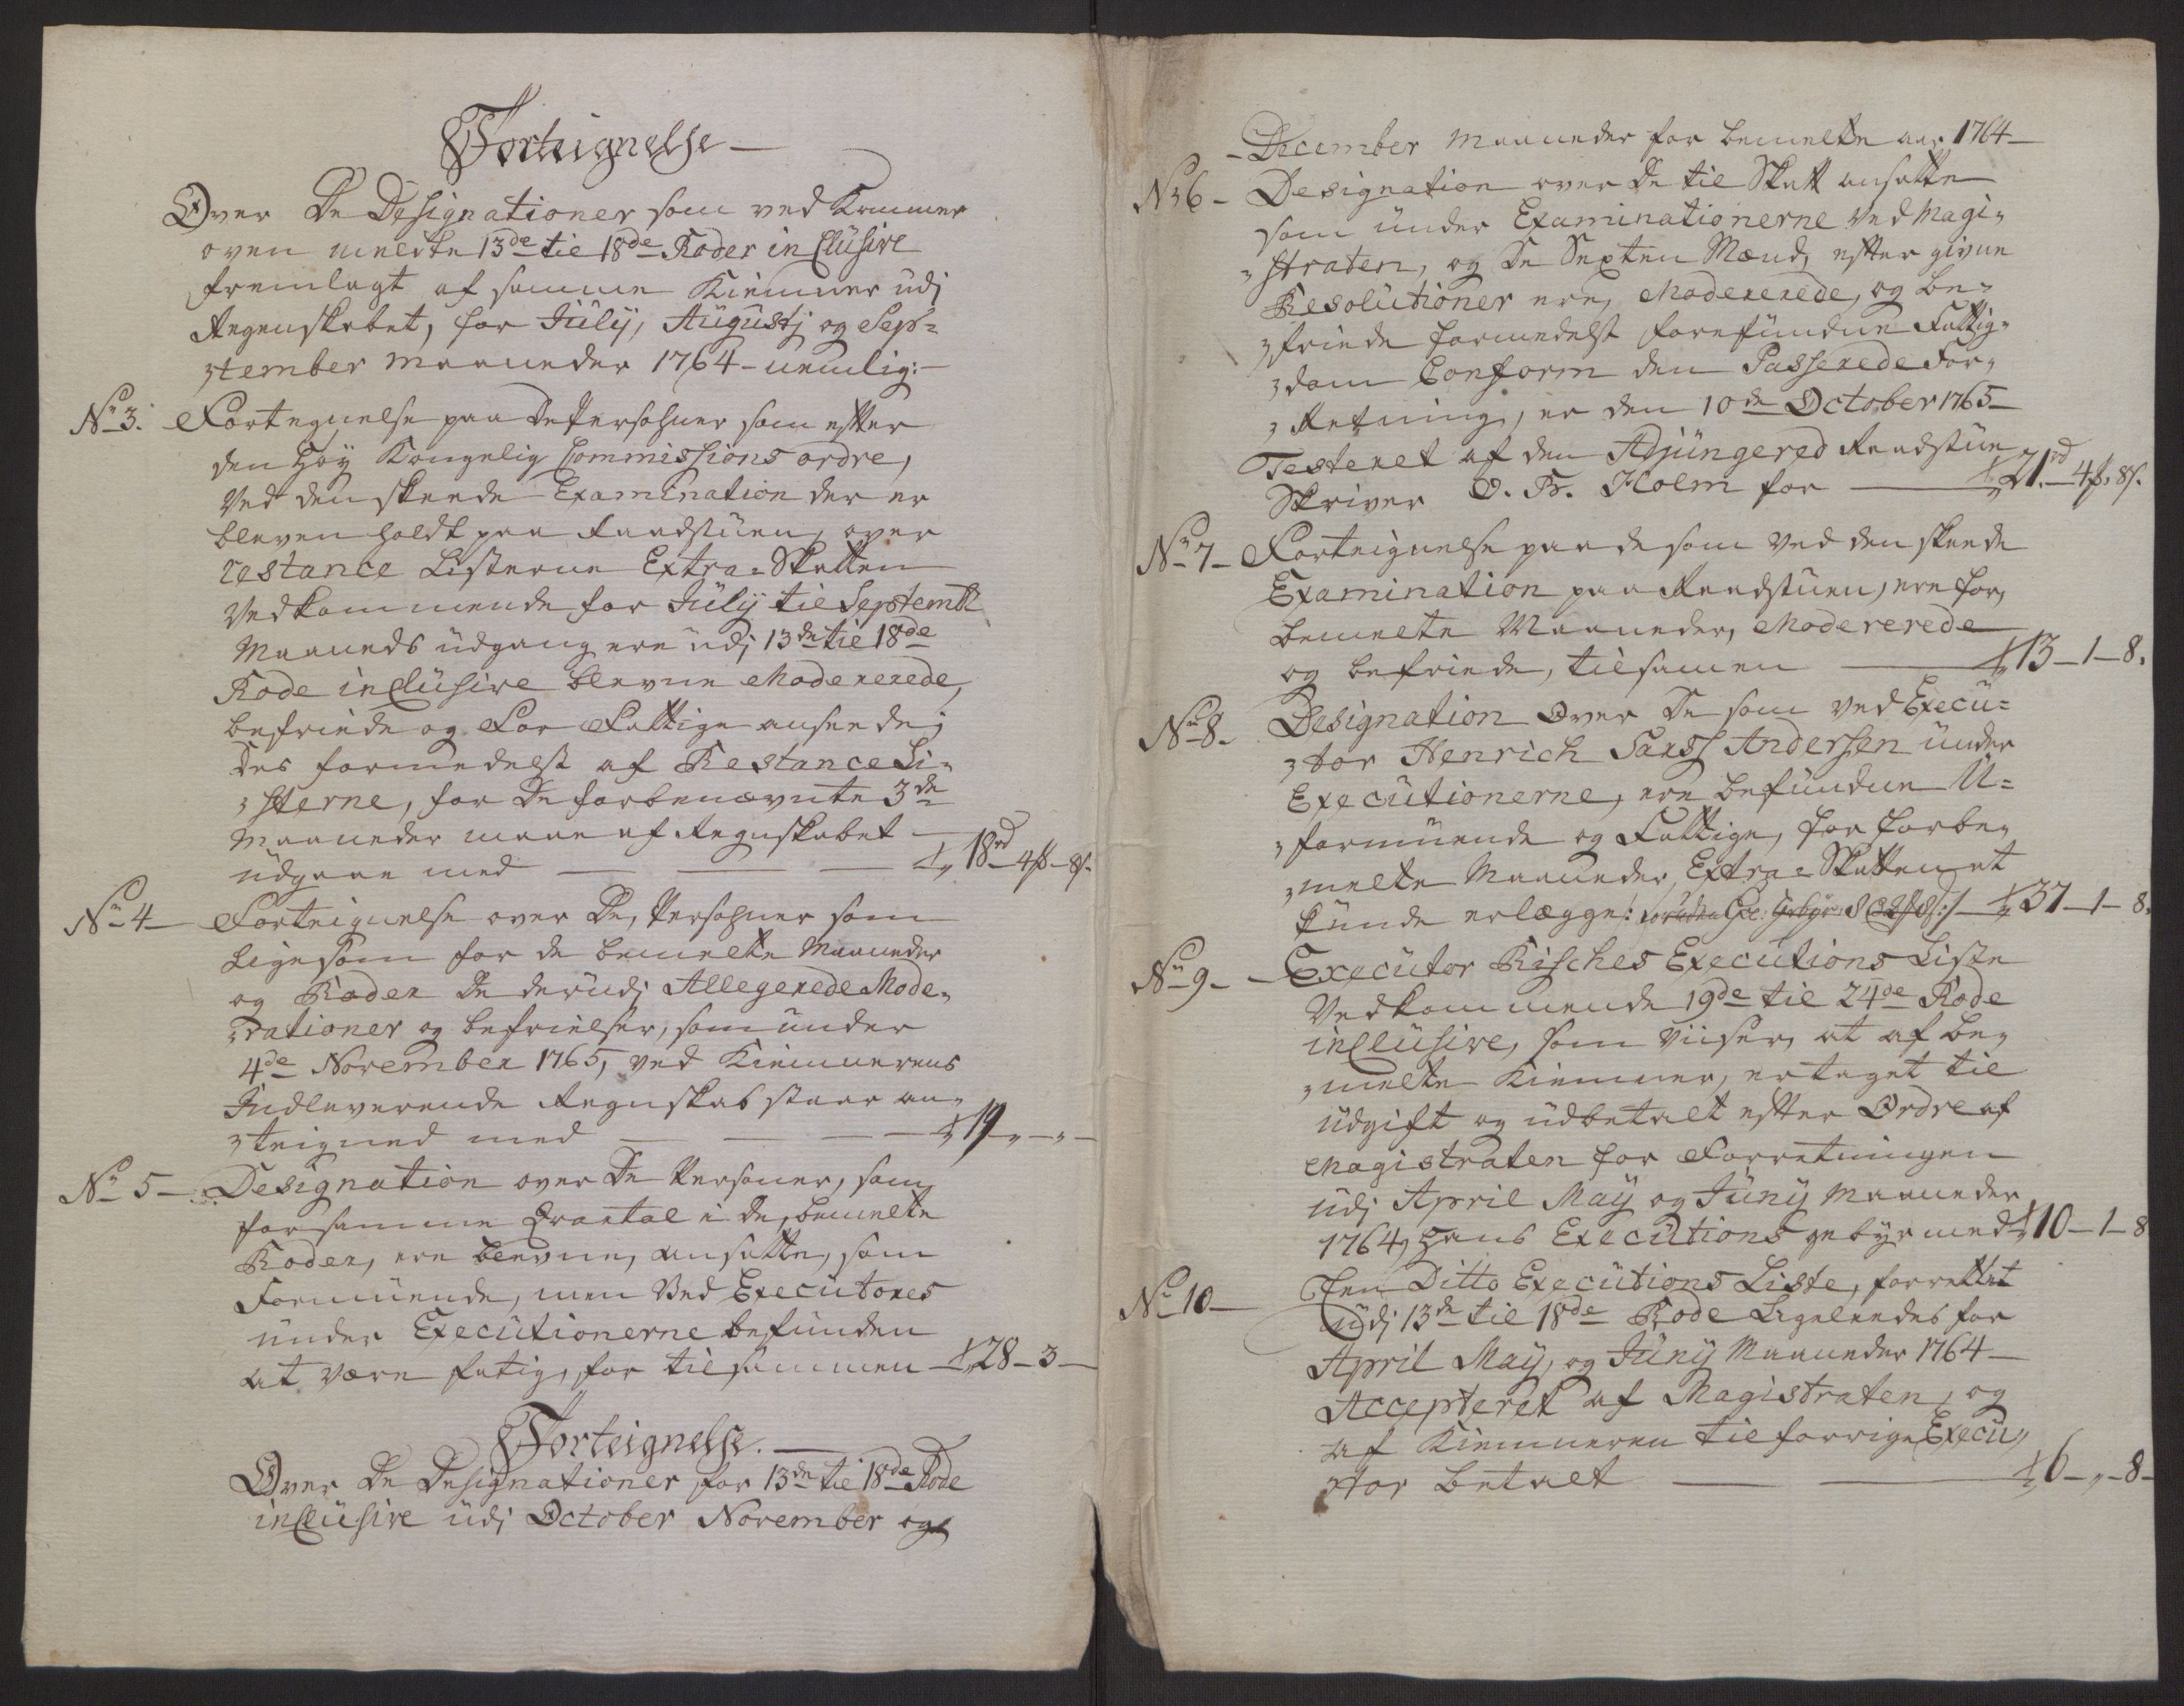 Forteignelse
Over De Designationer som ved kommer
oven meldte 13de til 18de Roder inclusive
fremlagt af samme Kiemner udj
Regenskabet, for Julij, Augustj og Sep-
tember maaneder 1764 - nemlig:
No 3. Fortegnelse paa de Persohner som efter
den høy Kongelig Commissions ordre,
Ved den skeede Examination der er
bleven holdt paa Raadstuen, over
restance Listerne Extra-Skatten
Vedkommende for Julij til Septembr
Maaneds udgang ere udj 13de til 18de
Rode inclusive blevne Modererede,
befriede og For Fattige ansee de;
des formedelst af Restance Li-
sterne, for De forbenævnte 3de
Maaneder maae af Regnskabet
udgaae med 18rd 4ß 8s.
No 4 Forteignelse over De, Persohner som
Ligesom for de bemelte Maaneder
og Roder De derudj Allegerede Mode-
rationer og befrielser, som under
4de November 1765, ved Kiemnerens
Indleverende Regnskab staar an-
teigned med 19 - " - "
No 5 Designation over De Personer, som
for samme Qvartal i de bemelte
Roder, ere blevne, ansatte, som
Formuende, men Ved Executores
under Executionerne befunden
at være fatig, for tilsammen 28 - 3 -
Forteignelse.
Over De Designationer for 13de til 18de Rode
inclusive udj October November og
December Maaneder for bemelte aar 1764
No 6 - Designation over De til Skatt ansatte
som under Examinationerne Ved Magi-
straten, og De Sexten Mænd, efter givne
Resolutioner ere, Modererede, og be-
friede formedelst forefundne Fattig-
dom Conform den Passerede For-
Retning, er den 10de October 1765
Testeret af den Adjungered Raadstue
Skriver O. Fr. Holm for 21rd 4ß 8s.
No 7 - Forteignelse paa de som Ved den skeede
Examination paa Raadstuen, ere for,
bemelte Maaneder, Modererede
og befriede, tilsamen 13 - 1 - 8.
No 8. Designation Over De som ved Execu-
tor Henrich Larss Anderssen under
Executionerne, ere befundne U-
formuende og Fattige, for forbe-
melte Maaneder, Extra-Skatten at
kunde erlægge 37 - 1 - 8.
No 9 - Executor Risches Executions Liste
Vedkommende 19de til 24de Rode
inclusive, som viiser, at af be-
melte Kiemner, er taget til
udgift og udbetalt efter Ordre af
Magistraten for Forretningen
udj April May og Junij Maaneder
1764, hans Executions gebyr med 10 - 1 - 8
No 10 Een Ditto Executions Liste, forrettet
udj 13de til 18de Rode Ligeleedes for
April May, og Junij Maaneder 1764
Accepteret af Magistraten, og
af Kiemneren til forrige Execu-
tor betalt 6 - " - 8 -